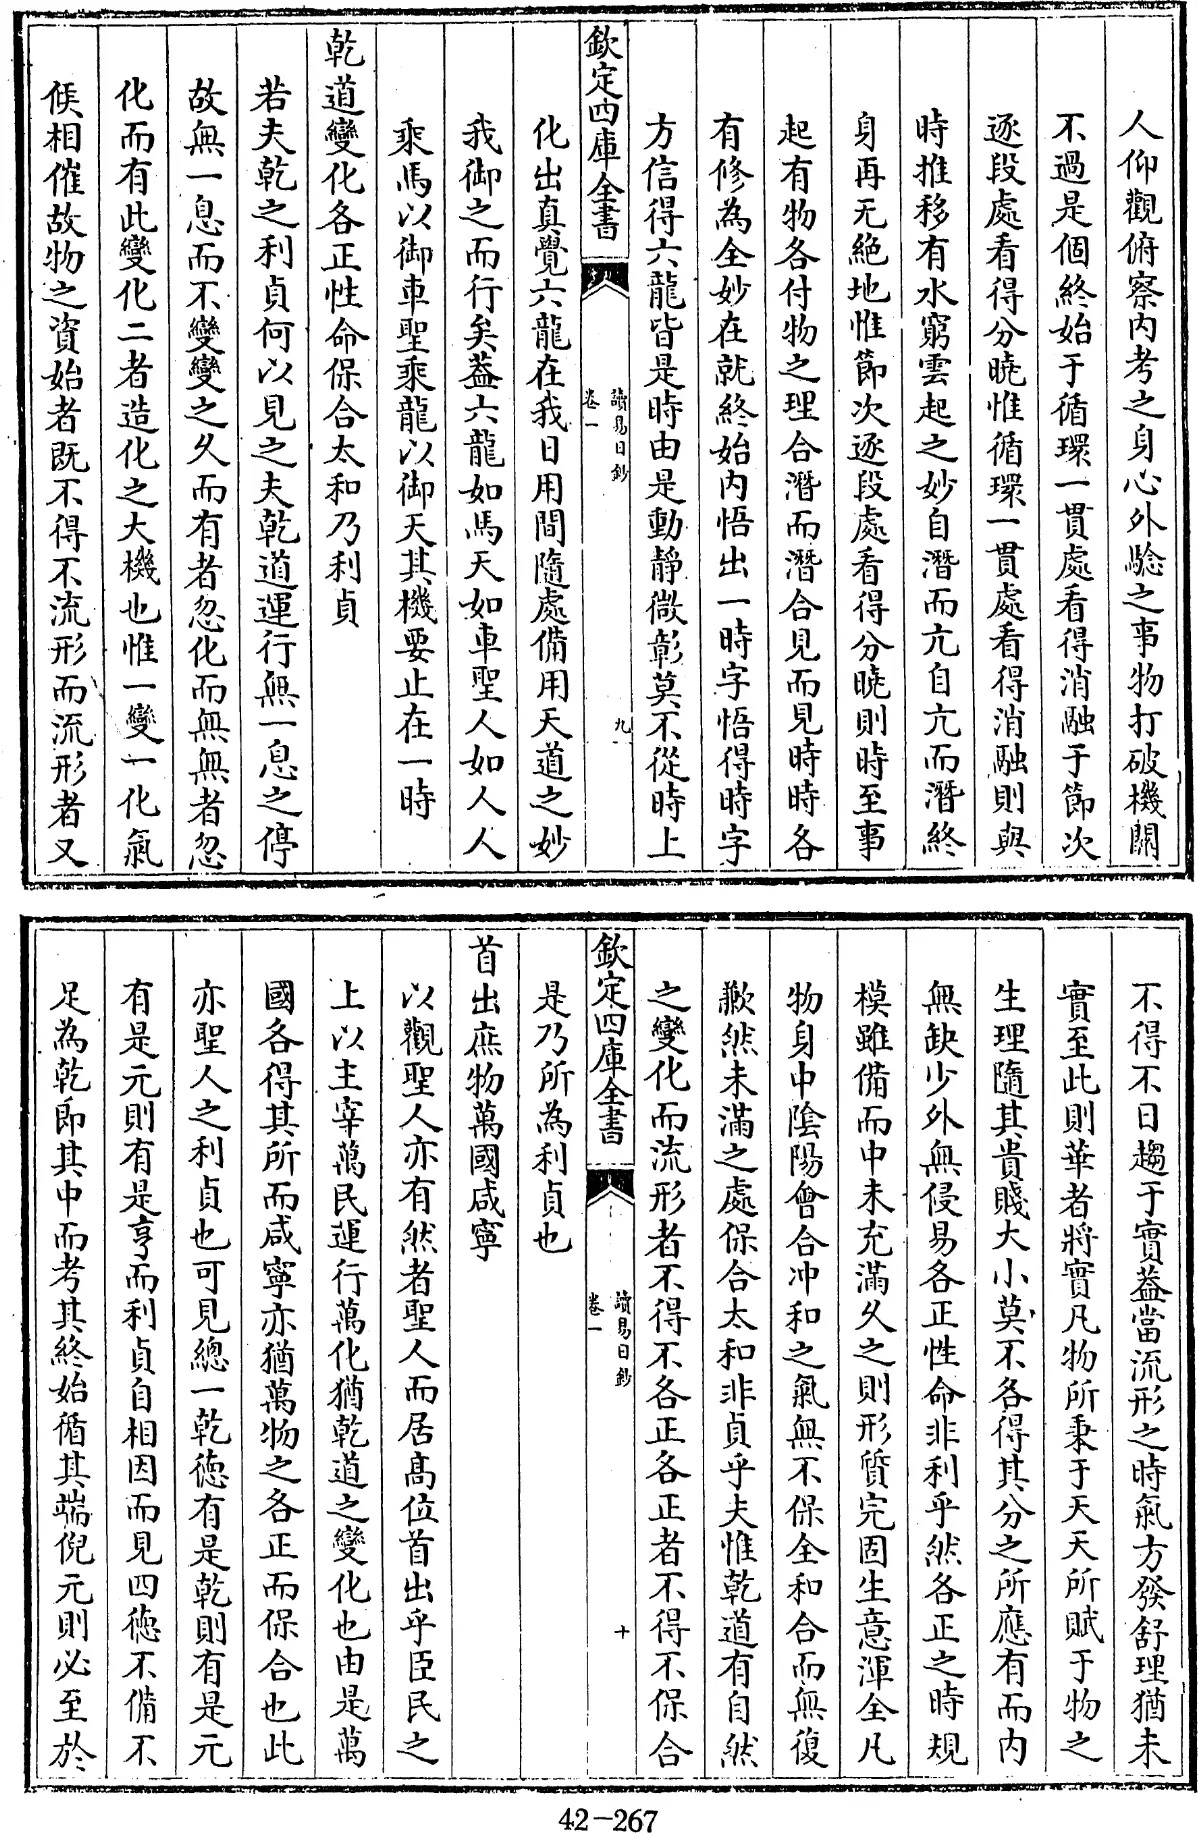 人仰觀俯察内考之身心外驗之事物打破機關
不過是個終始于循環一貫處看得消融于節次
逐段處看得分曉惟循環一貫處看得消融則與
時推移有水窮雲起之妙自潛而亢自亢而潛終
身再无絶地惟節次逐段處看得分曉則時至事
起有物各付物之理合潛而潛合見而見時時各
有修為全妙在就終始内悟出一時字悟得時字
方信得六龍皆是時由是動靜微彰莫不從時上
欽定四庫全書
讀易日鈔
卷一
九
化出真覺六龍在我日用間隨處備用天道之妙
我御之而行矣葢六龍如馬天如車聖人如人人
乘馬以御車聖乘龍以御天其機要止在一時
乾道變化各正性命保合太和乃利貞
若夫乾之利貞何以見之夫乾道運行無一息之停
故無一息而不變變之久而有者忽化而無無者忽
化而有此變化二者造化之大機也惟一變一化氣
候相催故物之資始者既不得不流形而流形者又
不得不日趨于實葢當流形之時氣方發舒理猶未
實至此則華者將實凡物所秉于天天所賦于物之
生理隨其貴賤大小莫不各得其分之所應有而内
無缺少外無侵易各正性命非利乎然各正之時規
模雖備而中未充滿久之則形質完固生意渾全凡
物身中陰陽會合冲和之氣無不保全和合而無復
歉然未滿之處保合太和非貞乎夫惟乾道有自然
之變化而流形者不得不各正各正者不得不保合
欽定四庫全書
讀易日鈔
卷一
十
是乃所為利貞也
首出庶物萬國咸寧
以觀聖人亦有然者聖人而居高位首出乎臣民之
上以主宰萬民運行萬化猶乾道之變化也由是萬
國各得其所而咸寧亦猶萬物之各正而保合也此
亦聖人之利貞也可見總一乾德有是乾則有是元
有是元則有是亨而利貞自相因而見四德不備不
足為乾即其中而考其終始循其端倪元則必至於
42-267